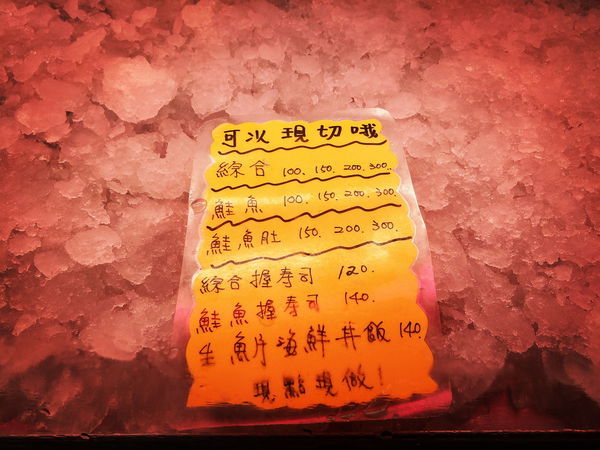 可以現切哦
綜合 100. 150. 200. 300.
鮭魚 100. 150. 200. 300.
鮭魚肚 150. 200. 300.
綜合握寿司 120.
鮭魚握寿司 140.
生魚片海鮮丼飯 140.
現點現做!